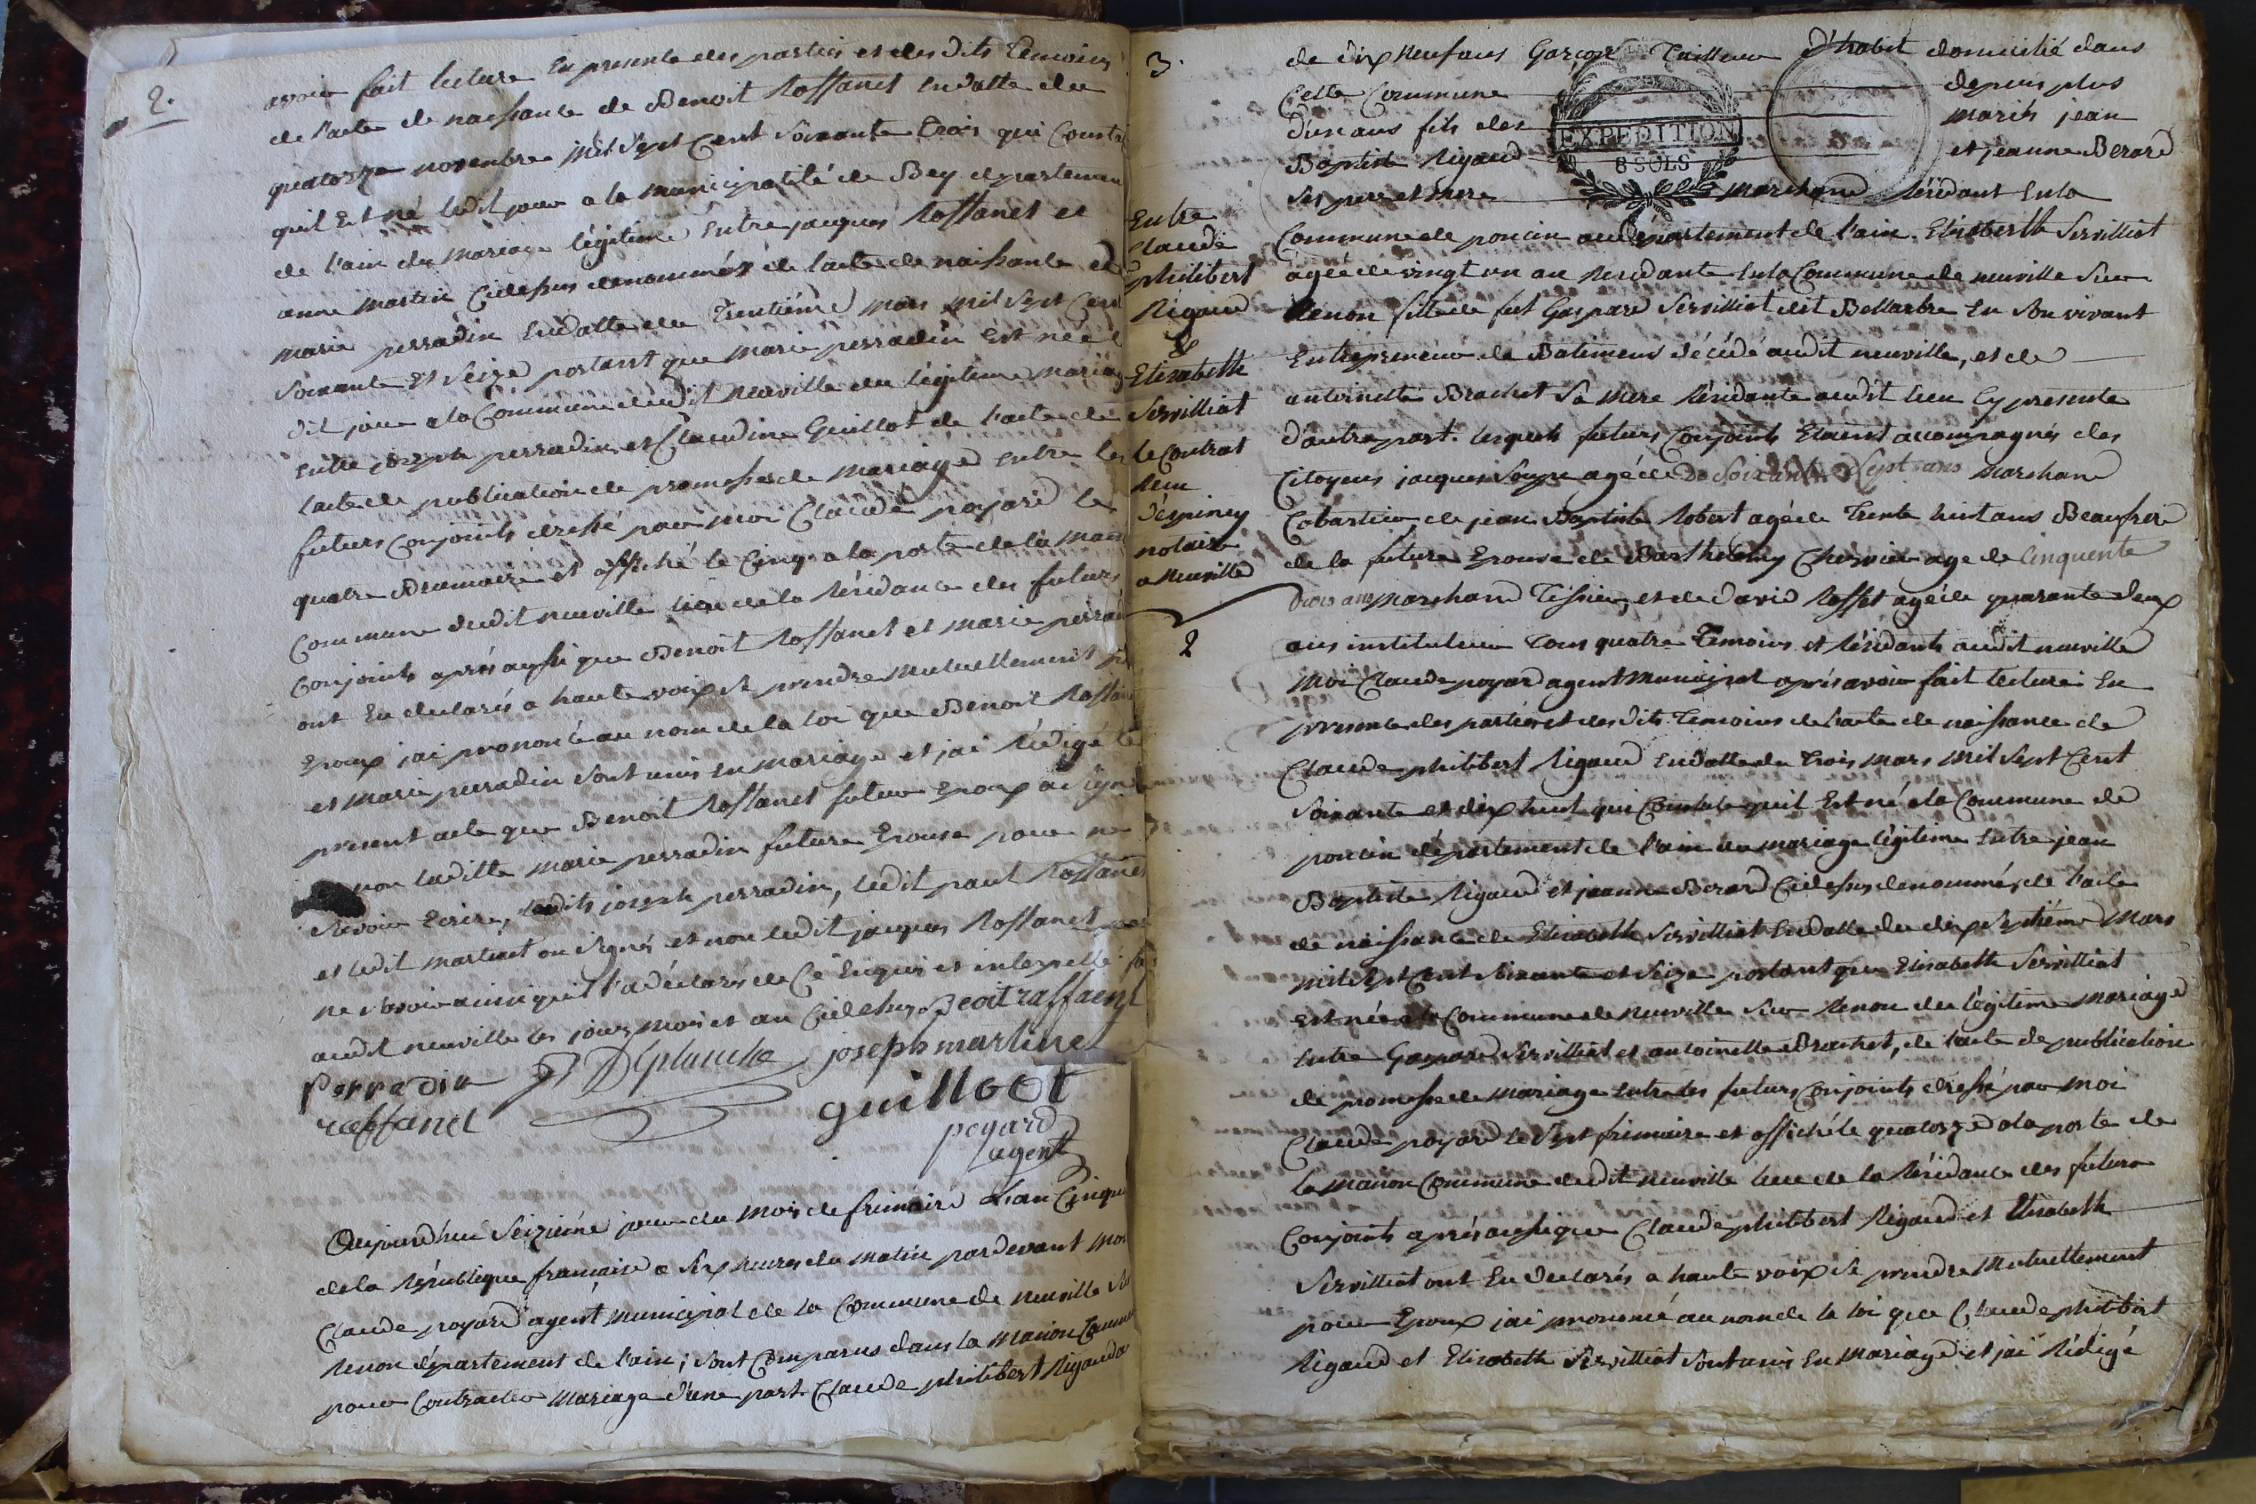 2.
avoir fait lecture En presence des parties et des dits Temoins
de l'acte de naissance de Benoit Raffanel En datte du
quatorze novembre mil sept Cent soixante trois qui Consta
quil Est né ledit jour a la municipalité de Bey departemen
de l'ain du mariage légitime Entre jacques Raffanel et
anne martin Cidessus denommés de l'acte de naissance de
marie perradin En datte du Trentiéme mars mil sept Cent
soixante Et seize portant que marie perradin Est née l
dit jour a la Commune dudit neuville du légitime mariag
Entre joseph perradin et Claudine Guillot de l'acte de
l'acte de publication de promesse de mariage Entre les
futurs Conjoints dressé par moi Claude poyard le
quatre Brumaire et affiché le Cinq a la porte de la mais
Commune dudit neuville lieu de la Résidance des futurs
Conjoints aprés aussi que Benoit Raffanel et marie perradi
ont Eu declarés a haute voix se prendre mutuellement p
Epoux jai prononcé au nom de la loi que Benoit Raffan
et marie perradin sont unis En mariage et jai Rédigé le
present acte que Benoit Raffanel futur Epoux a signé
non laditte marie perradin future Epouse pour ne
savoir Ecrire, ledits joseph perradin, ledit paul Raffanel
et ledit martinet on signés et non ledit jacques Raffanel
ne savoir ainsi quil l'a déclarés de Ce Enquis et interpellé f
audit neuville les jour, mois et an Cidessus Beoit raffaenl
Perradin DEplanche joseph martinet
raffanel guilloot
poyard
agent
Aujourd'hui seiziéme jour du mois de frimaire L'an Cinqu
de la République francaise a six heures du matin pardevant moi
Claude poyard agent municipal de la Commune de neuville su
Renon département de l'ain, sont Comparus dans la maison Commu
pour Contracter mariage d'une part Claude philibert Rigaud a
3.
de dix neuf ans Garçon Tailleur d'habit domicilié dans
Cette Commune depuis plus
d'un ans fils des mariés jean
Baptiste Rigaud et jeanne Berard
ses pere et mere marchand Résidant En la
EXPEDITION
8 SOLS
Commune de poncin au département de l'ain. Elisabeth Servilliat
agée de vingt un an Residante En la Commune de neuville sur
Renon fille de fut Gaspard Servilliat dit Bellarbre En son vivant
Entrepreneur de Batiment décédé audit neuville, et de
antoinette Brachet sa mere Résidante audit lieu Cy presente
d'autre part. lesquels futurs Conjoints Etaient accompagnés des
Citoyens jacques agé de De soixante Sept ans marchand
Cabartier de jean Baptiste Robert agé de Trente huit ans Beaufrere
de la future Epouse de Barthelemy agé de Cinquente
trois ans marchand Tissier, et de david Rosset agé de quarante deux
ans instituteur tous quatre Temoins et Résidants audit neuville
moi Claude poyard agent municipal aprés avoir fait lecture En
presence des parties et des dits Temoins de l'acte de naissance de
Claude philibert Rigaud En datte du trois mars mil sept Cent
soixante et dix huit qui Constate quil Est né a la Commune de
poncin département de l'ain du mariage légitime Entre jean
Baptiste Rigaud et jeanne Berard Cidessus denommés, de l'acte
de naissance de Elisabeth Servilliat En datte du dix septiéme mars
mil sept Cent soixante et seize portant que Elisabeth Servilliat
est née a la Commune de neuville sur Renon du légitime mariage
Entre Gaspard Servilliat et antoinette Brachet, de l'acte de publication
de promesse de mariage Entre les futurs Conjoints dressé par moi
Claude poyard le sept frimaire et affiché le quatorze a la porte de
la maison Commune dudit neuville lieu de la Résidance des futurs
Conjoints aprés aussi que Claude philibert Rigaud et Elisabeth
Servilliat ont Eu declarés a haute voix se prendre mutuellement
pour Epoux jai prononcé au nom de la loi que Claude philibert
Rigaud et Elisabeth Servilliat sont unis En mariage et jai Rédigé
Entre
Claude
philibert
Rigaud
&
Elisabeth
Servilliat
le Contrat
Reçu
d'Epiney
notaire
a neuville
2